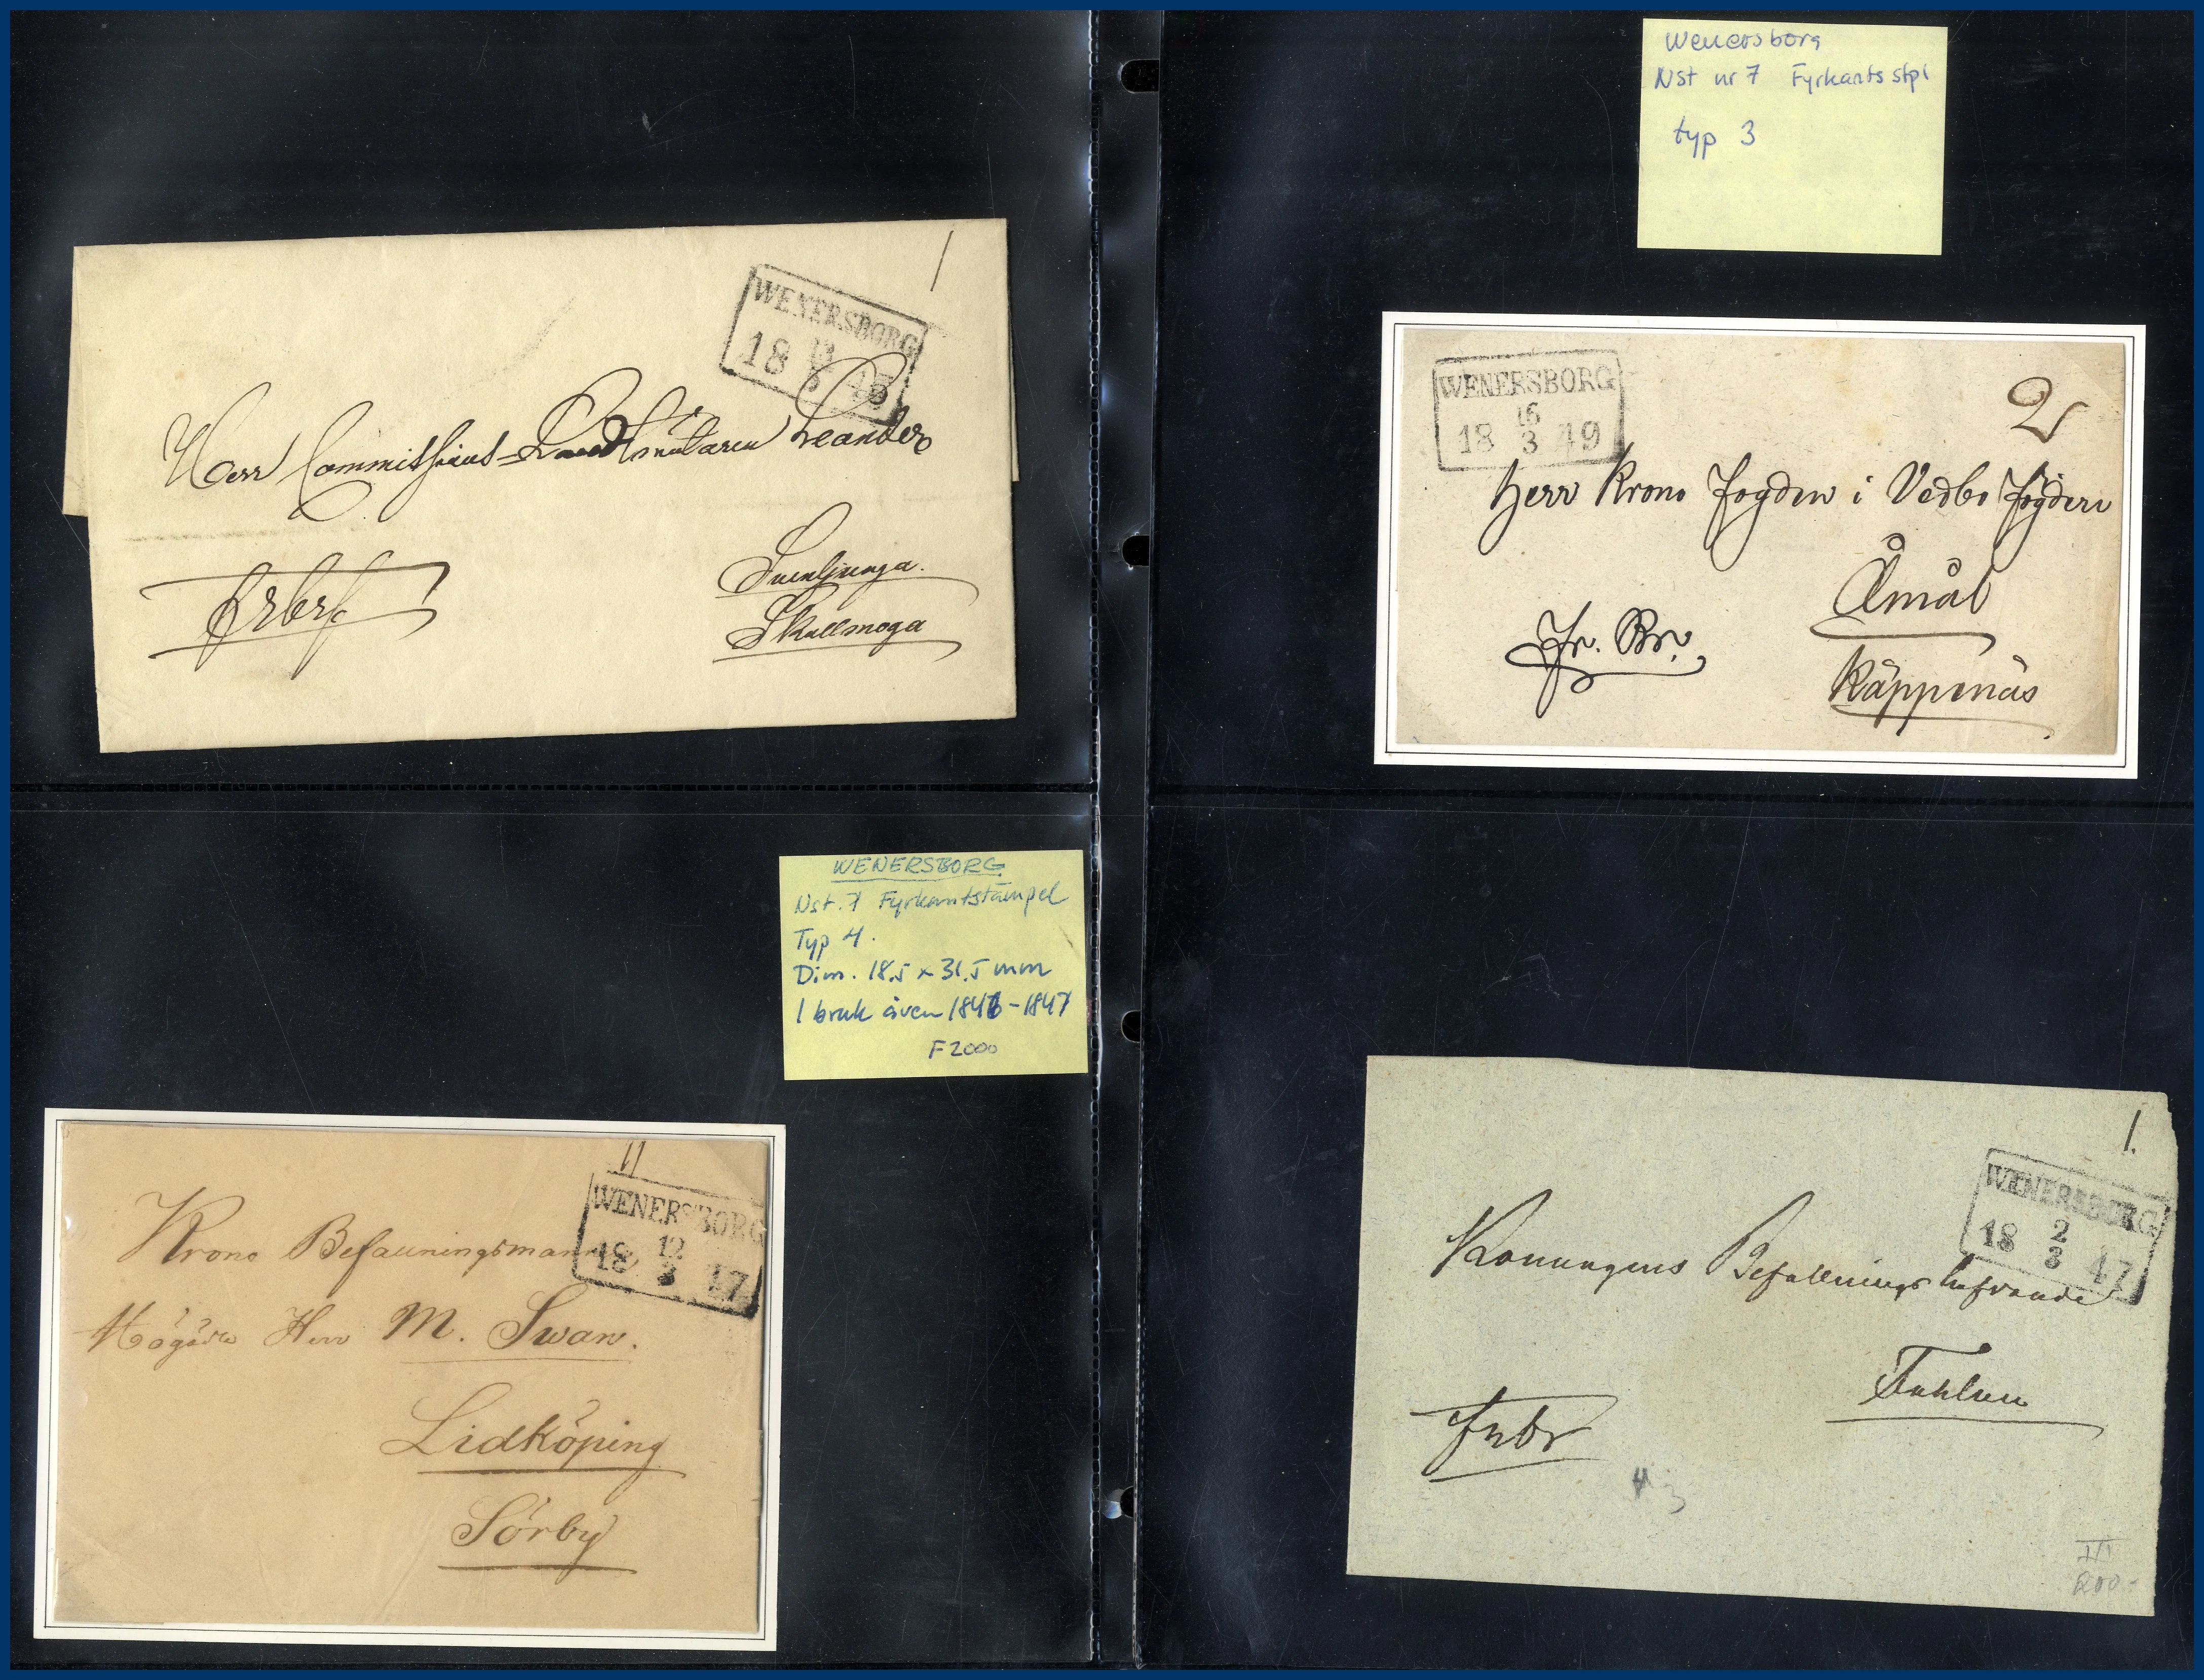 WENERSBORG
18 45
Herr Commissions-Landtmätaren Leander
Svenljunga.
Skallmoga
Wenersborg
Nst nr 7 Fyrkants stpl
typ 3
WENERSBORG
16
18 3 49
2
Herr Krono Fogden i Vedbo Fögderi
Åmål
Fr. Br.
Käppenäs
WENERSBORG
Nst. 7 Fyrkantstämpel
Typ 4.
Dim. 18,5 x 31,5 mm
I bruk även 1846-1847
F 2000
WENERSBORG
12
18 3 47
Krono Befallningsman
Högädle Herr M. Swan.
Lidköping
Sörby
1.
WENERSBORG
2
18 3 47
Konungens Befallningshafvande
Fahlun
Frbr
I/I
200-